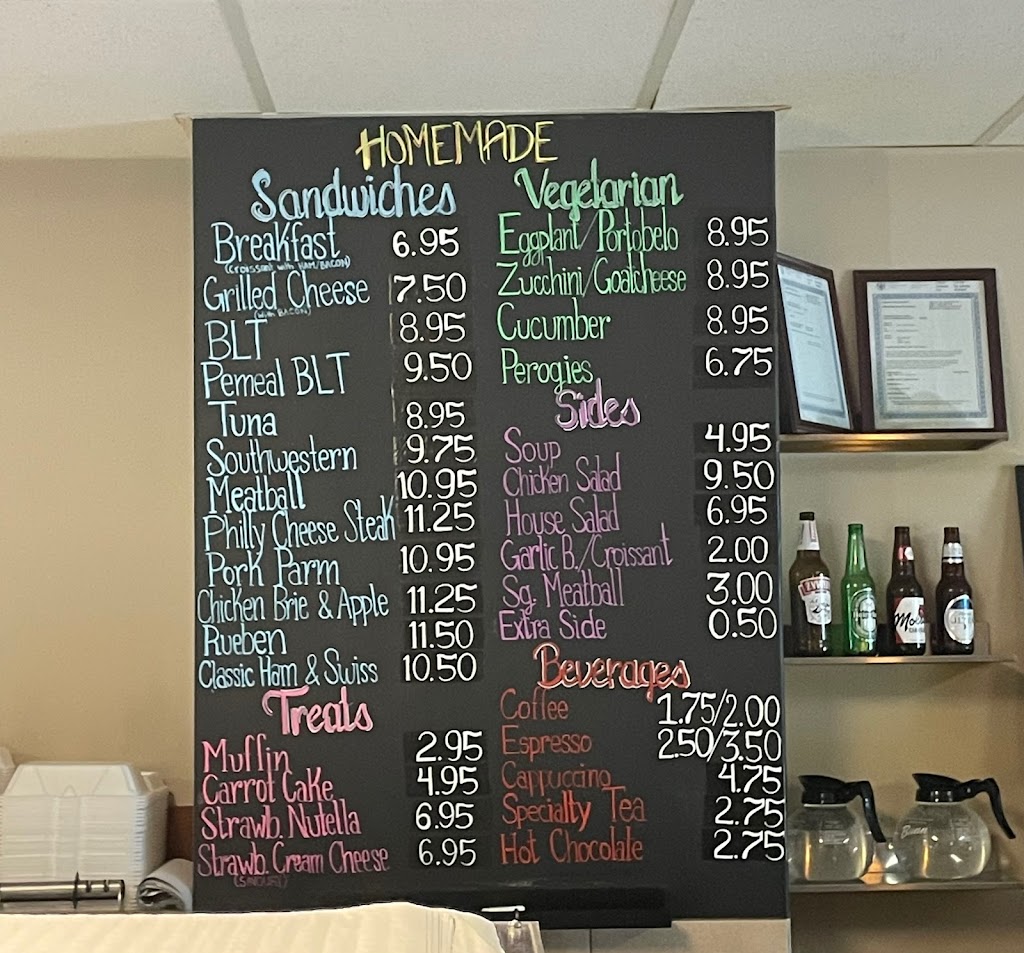 HOMEMADE
Sandwiches
Breakfast 6.95
(Croissant with HAM/BACON)
Grilled Cheese 7.50
(with BACON)
BLT 8.95
Pemeal BLT 9.50
Tuna 8.95
Southwestern 9.75
Meatball 10.95
Philly Cheese Steak 11.25
Pork Parm 10.95
Chicken Brie & Apple 11.25
Rueben 11.50
Classic Ham & Swiss 10.50
Treats
Muffin 2.95
Carrot Cake 4.95
Strawb. Nutella 6.95
Strawb. Cream Cheese 6.95
Vegetarian
Eggplant/Portobelo 8.95
Zucchini/Goatcheese 8.95
Cucumber 8.95
Perogies 6.75
Sides
Soup 4.95
Chicken Salad 9.50
House Salad 6.95
Garlic B./Croissant 2.00
Sg. Meatball 3.00
Extra Side 0.50
Beverages
Coffee 1.75/2.00
Espresso 2.50/3.50
Cappuccino 4.75
Specialty Tea 2.75
Hot Chocolate 2.75